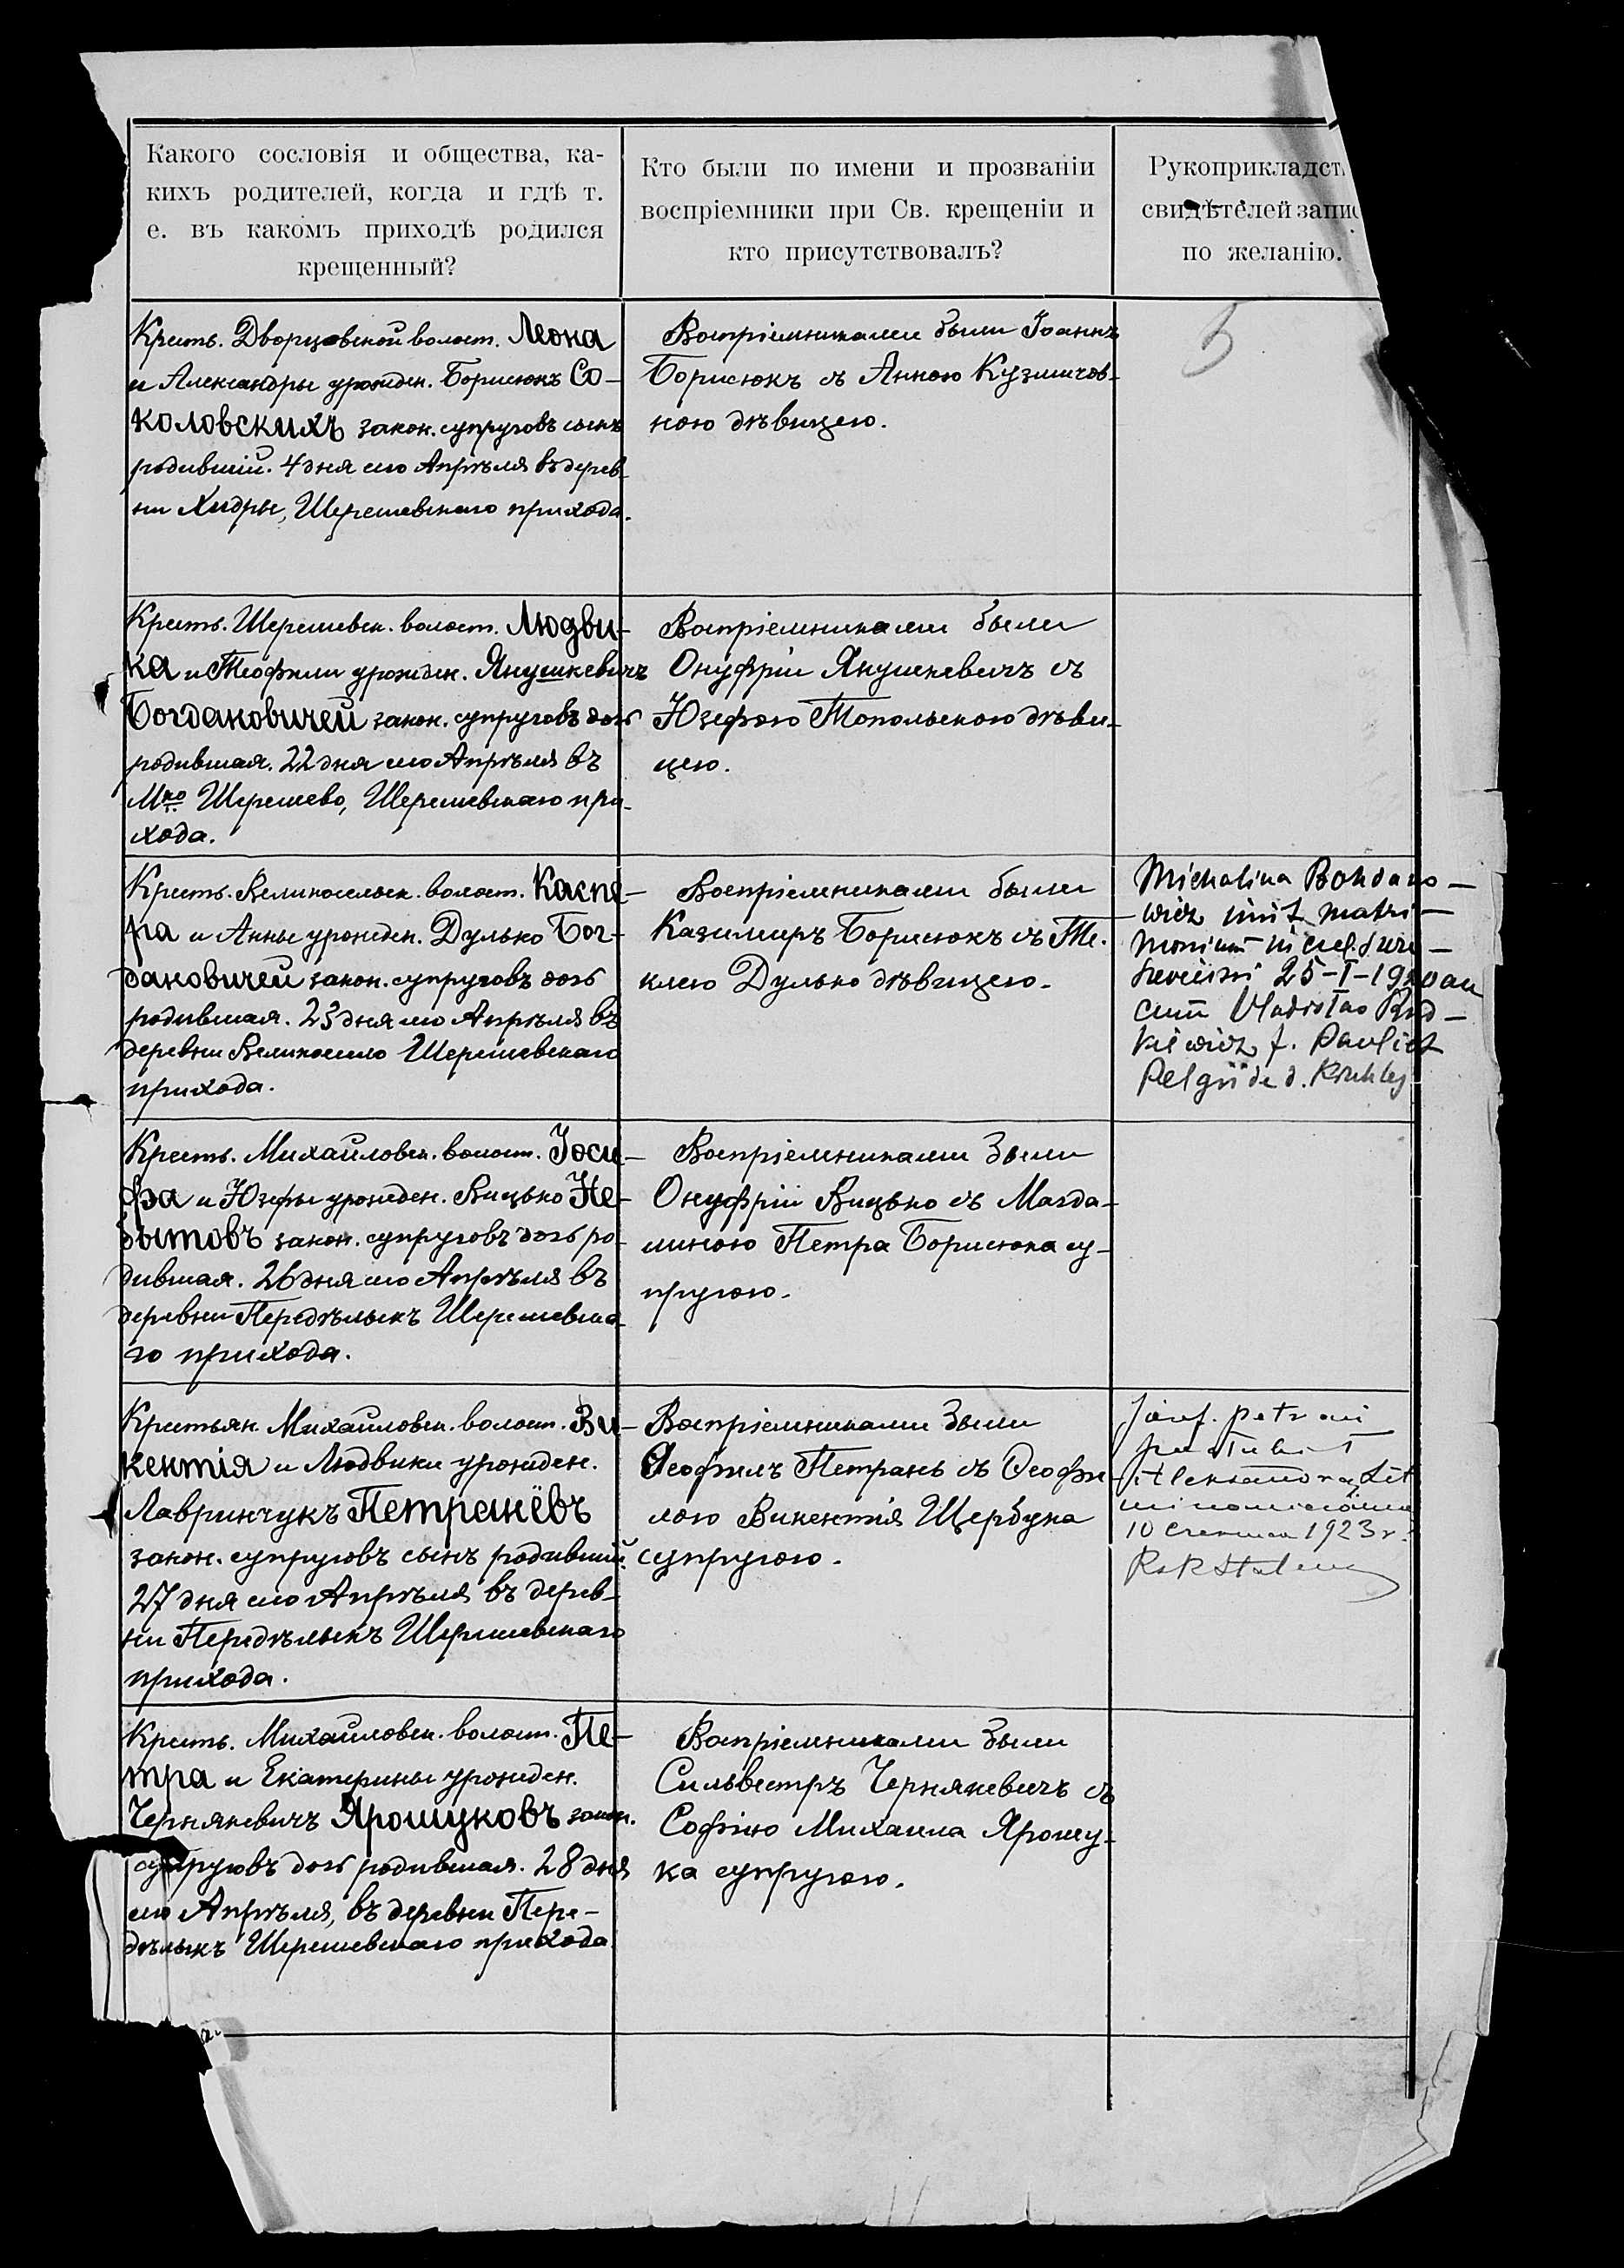 Какого сословія и общества, ка-
кихъ родителей, когда и гдѣ т.
е. въ какомъ приходѣ родился
крещенный?
Кто были по имени и прозванію
воспріемники при Св. крещеніи и
кто присутствовалъ?
Рукоприкладст
свидѣтелей запис
по желанію.
Кресть. Дворцовской волост. Леона
и Александры урожден. Борисюкъ Со-
коловскихъ закон. супруговъ сынъ
родившій. 4 дня сего Апрѣля въ дерев-
ни Хидры, Шерешевскаго прихода.
Воспріемниками были Іоаннъ
Борисюкъ съ Анною Кузмичов-
ною дѣвицею.
5
Кресть. Шерешевск. волост. Людви-
ка и Теофили урожден. Янушкевичъ
Богдановичей закон. супруговъ дочь
родившая. 22 дня сего Апрѣля въ
Мко Шерешево, Шерешевскаго при-
хода.
Воспріемниками были
Онуфрій Янушкевичъ съ
Юзефою Топольскою дѣви-
цею.
Кресть. Великосельск. волост. Каспе-
ра и Анны урожден. Дулько Бог-
дановичей закон. супруговъ дочь
родившая. 23 дня сего Апрѣля въ
деревни Великосело Шерешевскаго
прихода.
Воспріемниками были
Казимиръ Борисюкъ съ Те-
клею Дулько дѣвицею.
Michalina Bohdano-
wicz init matri-
monium in eccl.
25-I-1920 an
cum Vladislao Rud-
kiewicz f. Pauli et
Pelgii de d.
Кресть. Михайловск. волост. Іоси-
фа и Юзефы урожден. Вицько Не-
бытовъ закон. супруговъ дочь ро-
дившая. 26 дня сего Апрѣля въ
деревни Передѣльскъ Шерешевска-
го прихода.
Воспріемниками были
Онуфрій Вицько съ Магда-
линою Петра Борисюка су-
пругою.
Крестьян. Михайловск. волост. Ви-
кентія и Людвики урожден.
Лавринчукъ Петранёвъ
закон. супруговъ сынъ родившій.
27 дня сего Апрѣля въ дерев-
ни Передѣльскъ Шерешевскаго
прихода.
Воспріемниками были
Ѳеофилъ Петрань съ Ѳеофи-
лою Викентія Щербука
супругою.
Józef Petrań
poślubił
Aleksandrą Lit
10 czerwca 1923 r.
Кресть. Михайловск. волост. Пе-
тра и Екатерины урожден.
Чернякевичъ Ярошуковъ закон.
супруговъ дочь родившая. 28 дня
сего Апрѣля, въ деревни Пере-
дѣльскъ Шерешевскаго прихода
Воспріемниками были
Сильвестръ Чернякевичъ съ
Софіею Михаила Ярошу-
ка супругою.